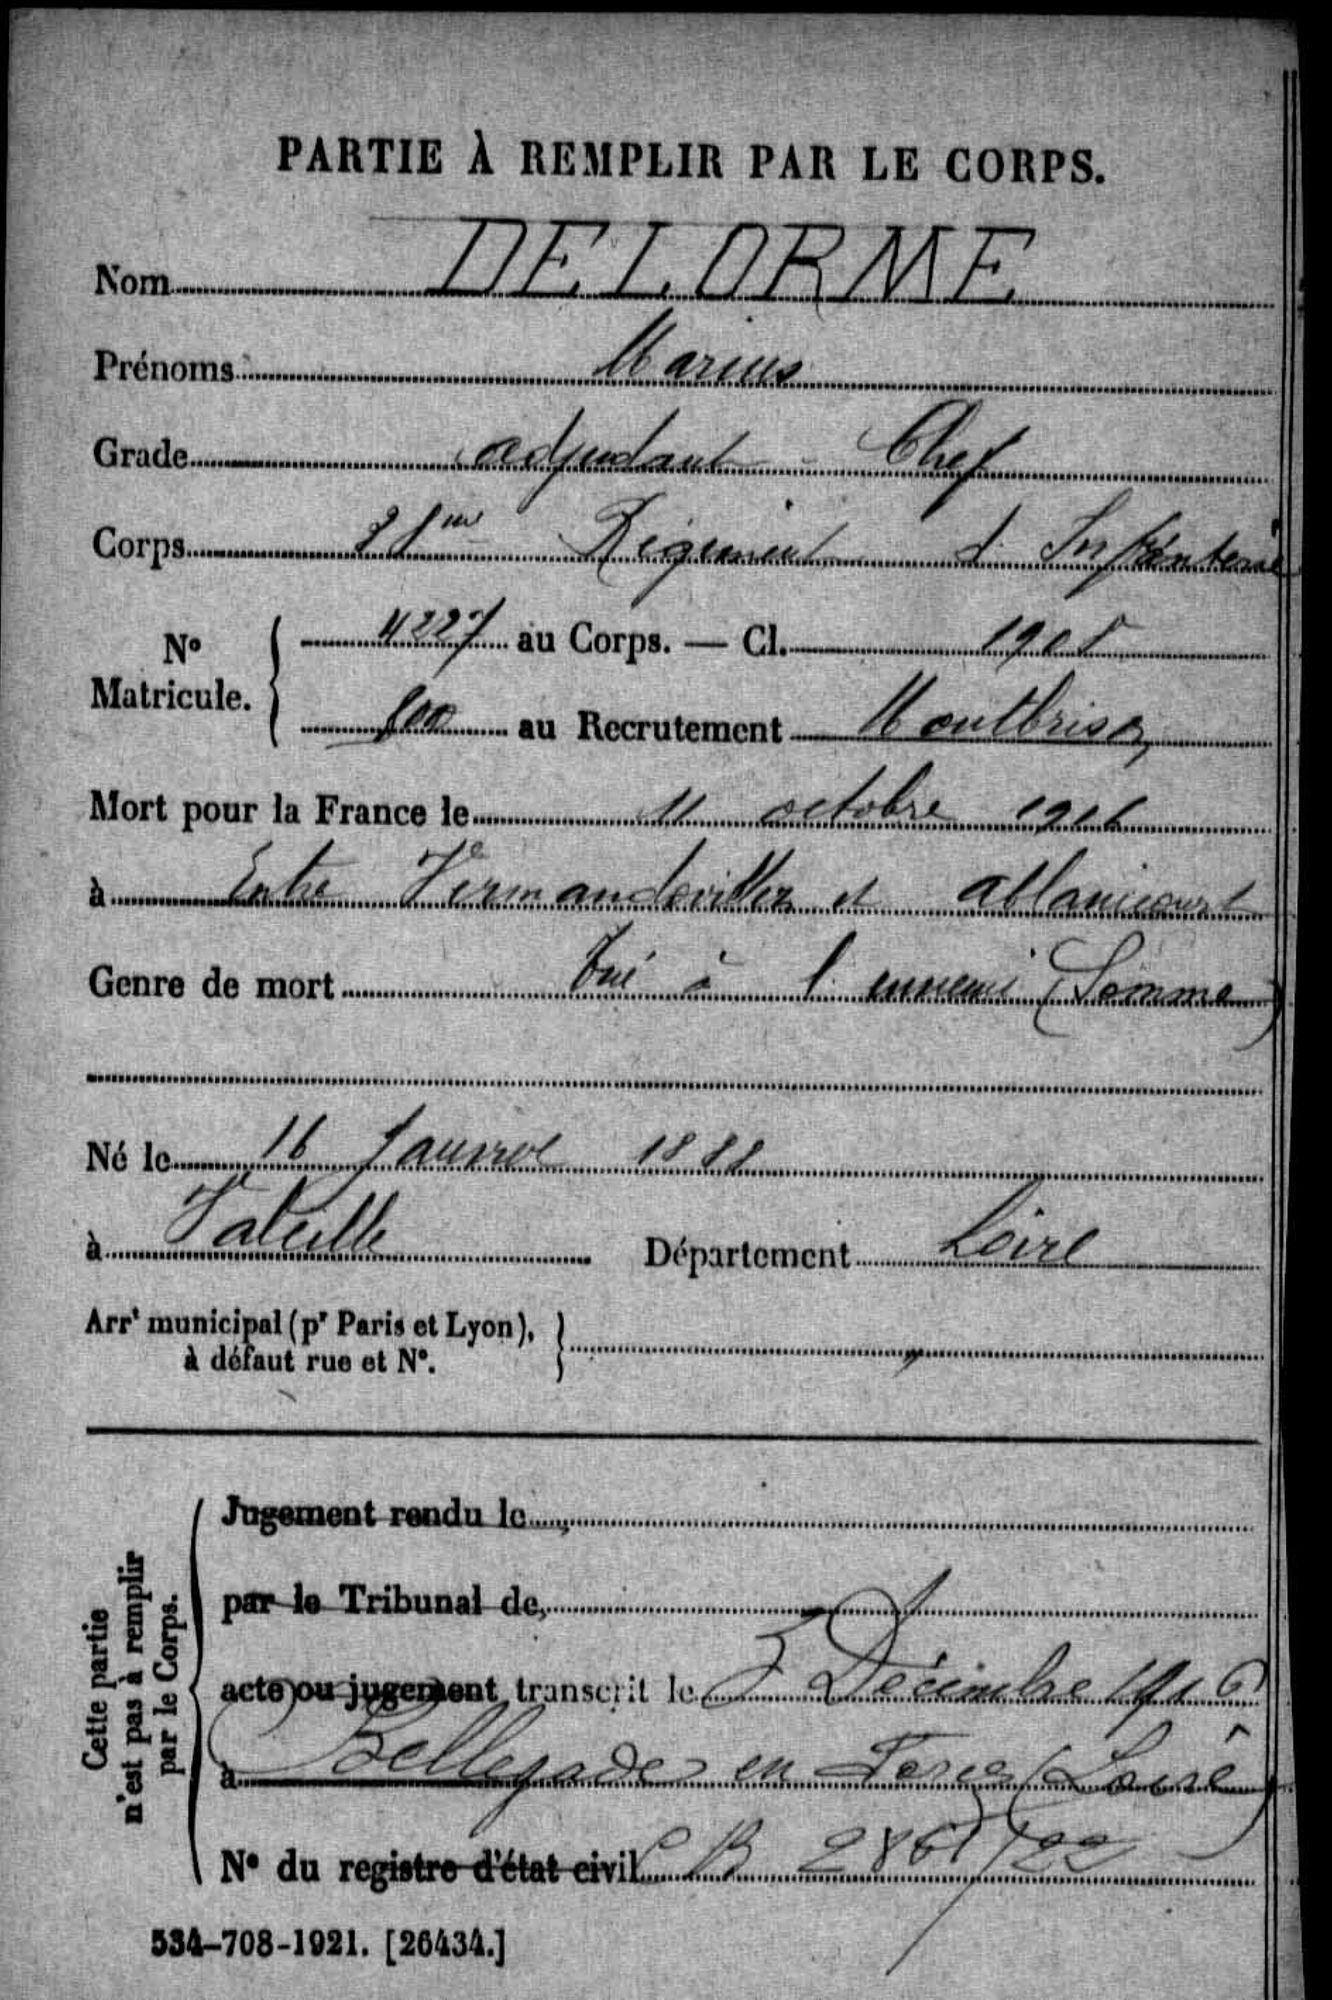 PARTIE À REMPLIR PAR LE CORPS.
Nom DELORME
Prénoms Marius
Grade adjudant - Chef
Corps 38me Régiment d'Infanterie
No Matricule. { 4227 au Corps. — Cl. 1908
800 au Recrutement Montbrison
Mort pour la France le 11 octobre 1916
à Entre Vermandoviller et ablaincourt
Genre de mort Tué à l'ennemi (Somme)
Né le 16 Janvier 1888
à Valeille Département Loire
Arrt municipal (pr Paris et Lyon),
à défaut rue et No.
Cette partie
n'est pas à remplir
par le Corps.
Jugement rendu le
par le Tribunal de
acte ou jugement transcrit le 5 Décembre 1916
à Bellegade en Forez (Loire)
No du registre d'état civil 2861/22
534-708-1921. [26434.]